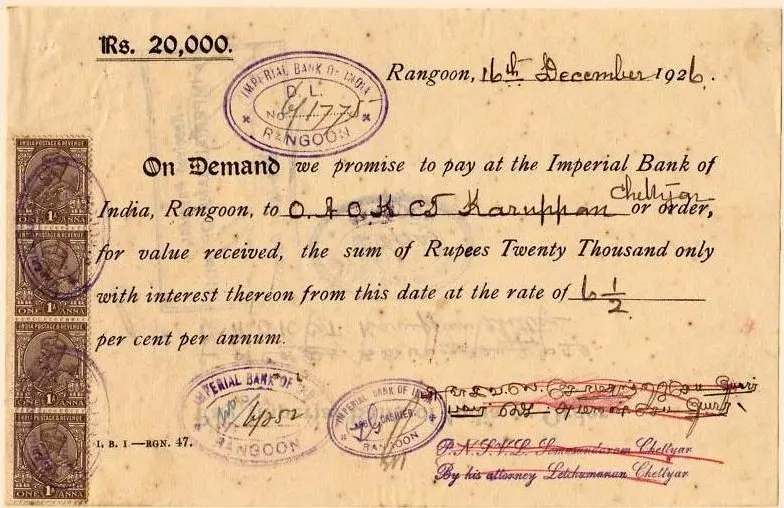 Rs. 20,000.
Rangoon, 16th December 1926.
IMPERIAL BANK OF INDIA
D. L.
NO. 6/1775
RANGOON
On Demand we promise to pay at the Imperial Bank of
Chettyar
India, Rangoon, to O. A. O. K. CT Karuppan or order,
for value received, the sum of Rupees Twenty Thousand only
with interest thereon from this date at the rate of 6 1/2
per cent per annum.
INDIA POSTAGE & REVENUE
1A
ONE ANNA
INDIA POSTAGE & REVENUE
1A
ONE ANNA
INDIA POSTAGE & REVENUE
1A
ONE ANNA
INDIA POSTAGE & REVENUE
1A
ONE ANNA
IMPERIAL BANK OF
RANGOON
IMPERIAL BANK OF INDIA
CASHIER
RANGOON
I. B. I.—RGN. 47.
P. N. S. V. L. Chettyar
By his attorney Letchmanan Chettyar